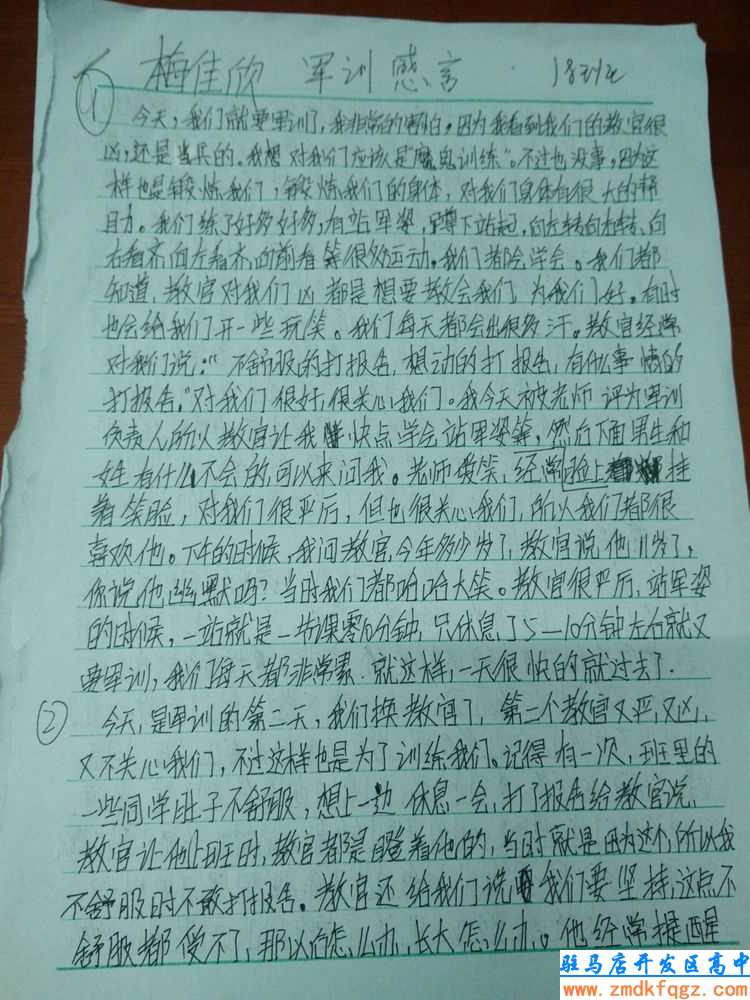 梅佳欣 军训感言
①
今天,我们就要军训了,我非常的害怕,因为我看到我们的教官很
凶,还是当兵的。我想对我们应该是“魔鬼训练”。不过也没事,因为这
样也是锻炼我们,锻炼我们的身体,对我们身体有很大的帮
助。我们练了好多好多,有站军姿,蹲下站起,向左转向右转、向
右看齐,向左看齐,向前看等很多运动。我们都会学会。我们都
知道,教官对我们凶都是想要教会我们,为我们好。有时
也会给我们开一些玩笑。我们每天都会出很多汗。教官经常
对我们说:“不舒服的打报告,想动的打报告,有什么事情的
打报告。”对我们很好,很关心我们。我今天被老师评为军训
负责人所以教官让我快点学会站军姿等,然后下面男生和
女生有什么不会的,可以来问我。老师爱笑,经常脸上挂
着笑脸,对我们很严厉,但也很关心我们,所以我们都很
喜欢他。下午的时候,我问教官今年多少岁了,教官说他11岁了,
你说他幽默吗?当时我们都哈哈大笑。教官很严厉,站军姿
的时候,一站就是一节课零10分钟,只休息了5—10分钟左右就又
要军训,我们每天都非常累.就这样,一天很快的就过去了.
② 今天,是军训的第二天,我们换教官了,第二个教官又严,又凶,
又不关心我们,不过这样也是为了训练我们。记得有一次,班里的
一些同学肚子不舒服,想上一边休息一会,打了报告给教官说,
教官让他出班时,教官都是瞪着他的,当时就是因为这个,所以我
不舒服时不敢打报告。教官还给我们说我们要坚持,这点不
舒服都受不了,那以后怎么办,长大怎么办。他经常提醒
驻马店开发区高中
www.zmdkfqgz.com